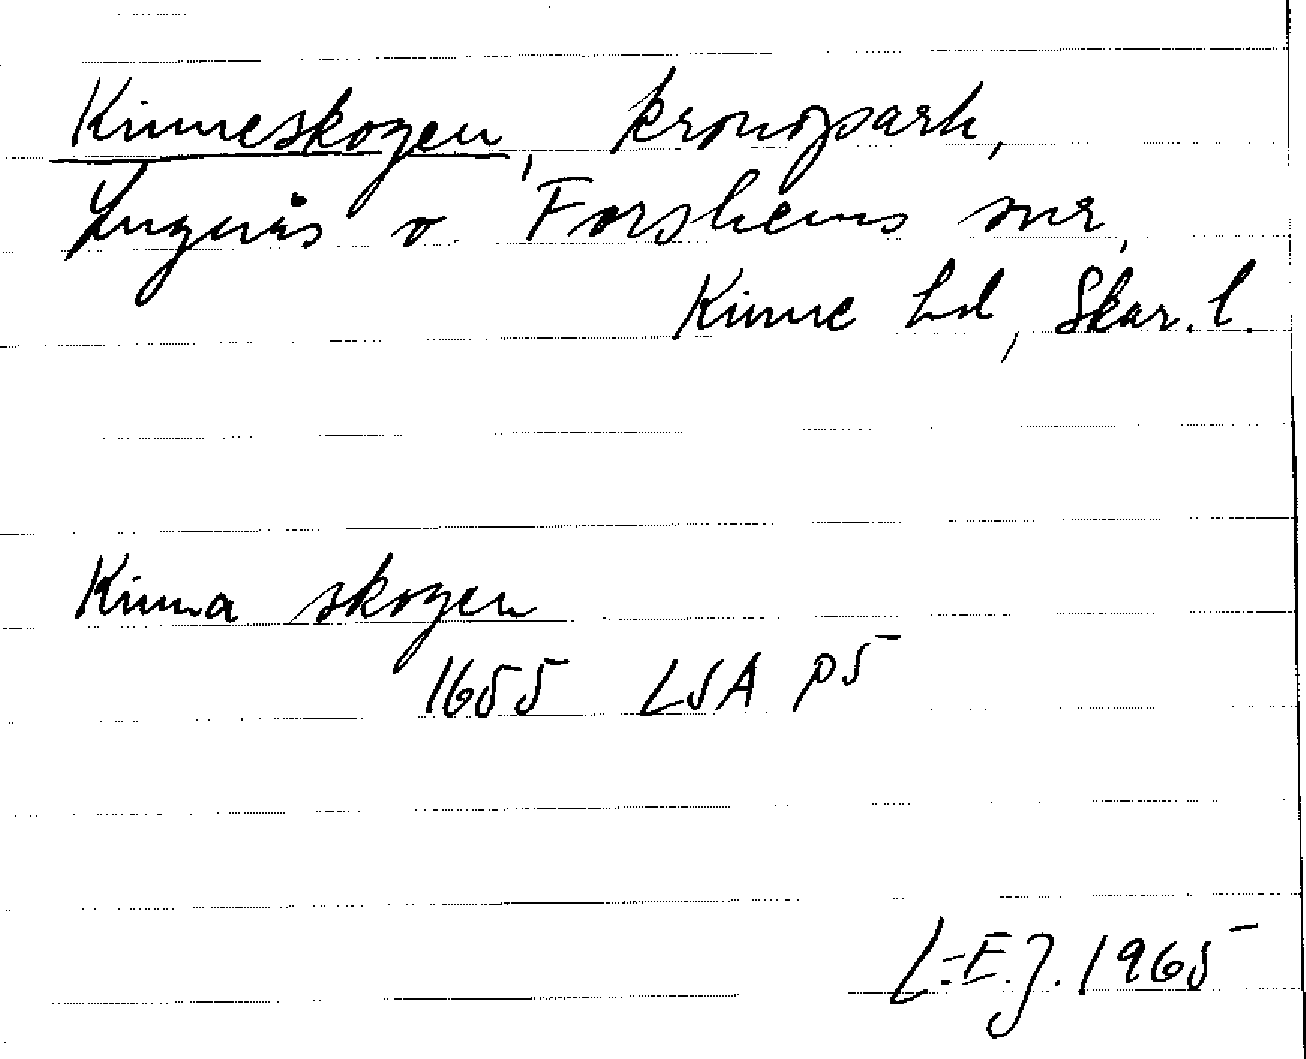 Kinneskogen, kronopark,
Lugnås o Forshems snr,
Kinne hd, Skar. l.
Kinna skogen
1655 LSA P5
L.-E.J. 1965